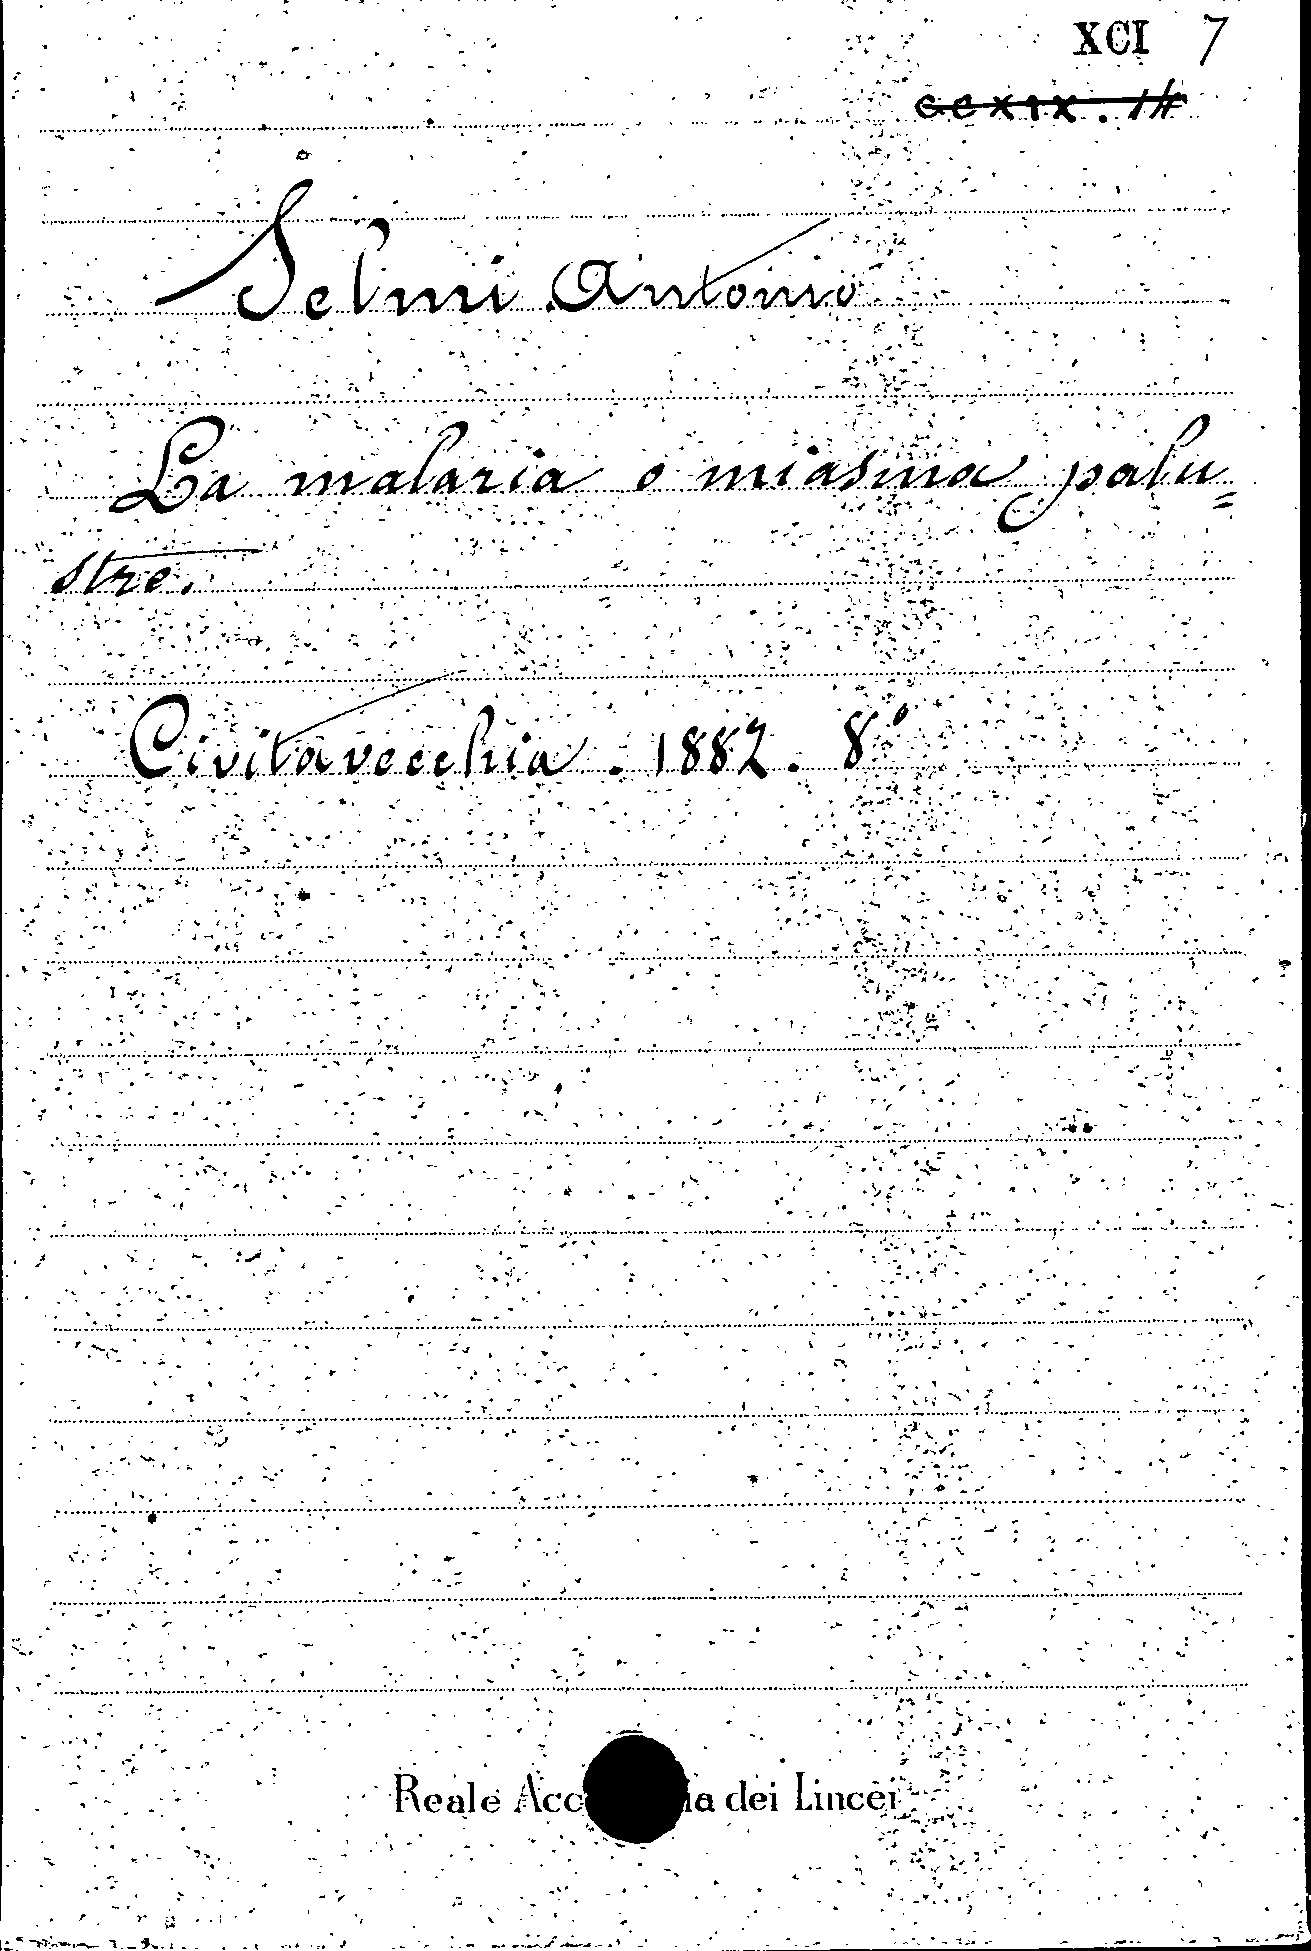 XCI 7
CCXIX. 14
Selmi Antonio
La malaria o miasma palu=
stre.
Civitavecchia. 1882. 8°
Reale Acc ia dei Lincei